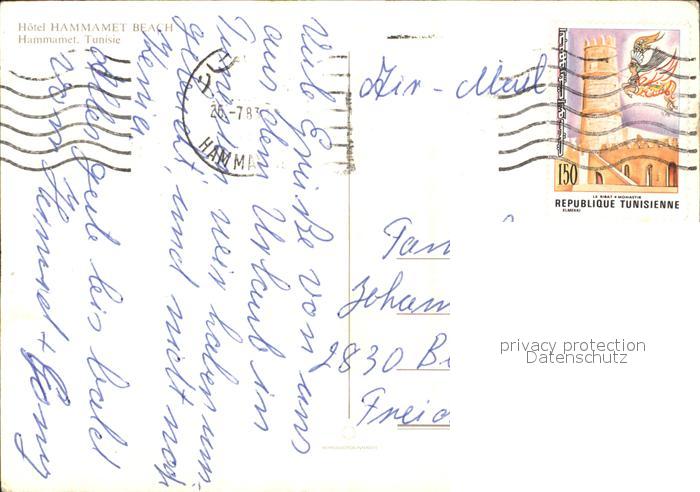 Hôtel HAMMAMET BEACH
Hammamet, Tunisie
Viele Grüße von uns
aus dem Urlaub in
Tunesien wir haben um-
gebucht, und nicht nach
Kenia
Alles gute bis bald
vom
26-7.83
HAMMA
Air - Mail
150
LE RIBAT • MONASTIR
REPUBLIQUE TUNISIENNE
ELMEKKI
Fam
Johan
2830 B
Freid
privacy protection
Datenschutz